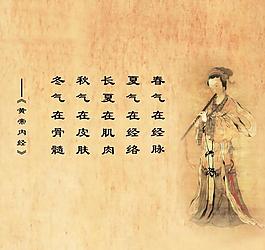 春气在经脉
夏气在经络
长夏气在肌肉
秋气在皮肤
冬气在骨髓
——《黄帝内经》